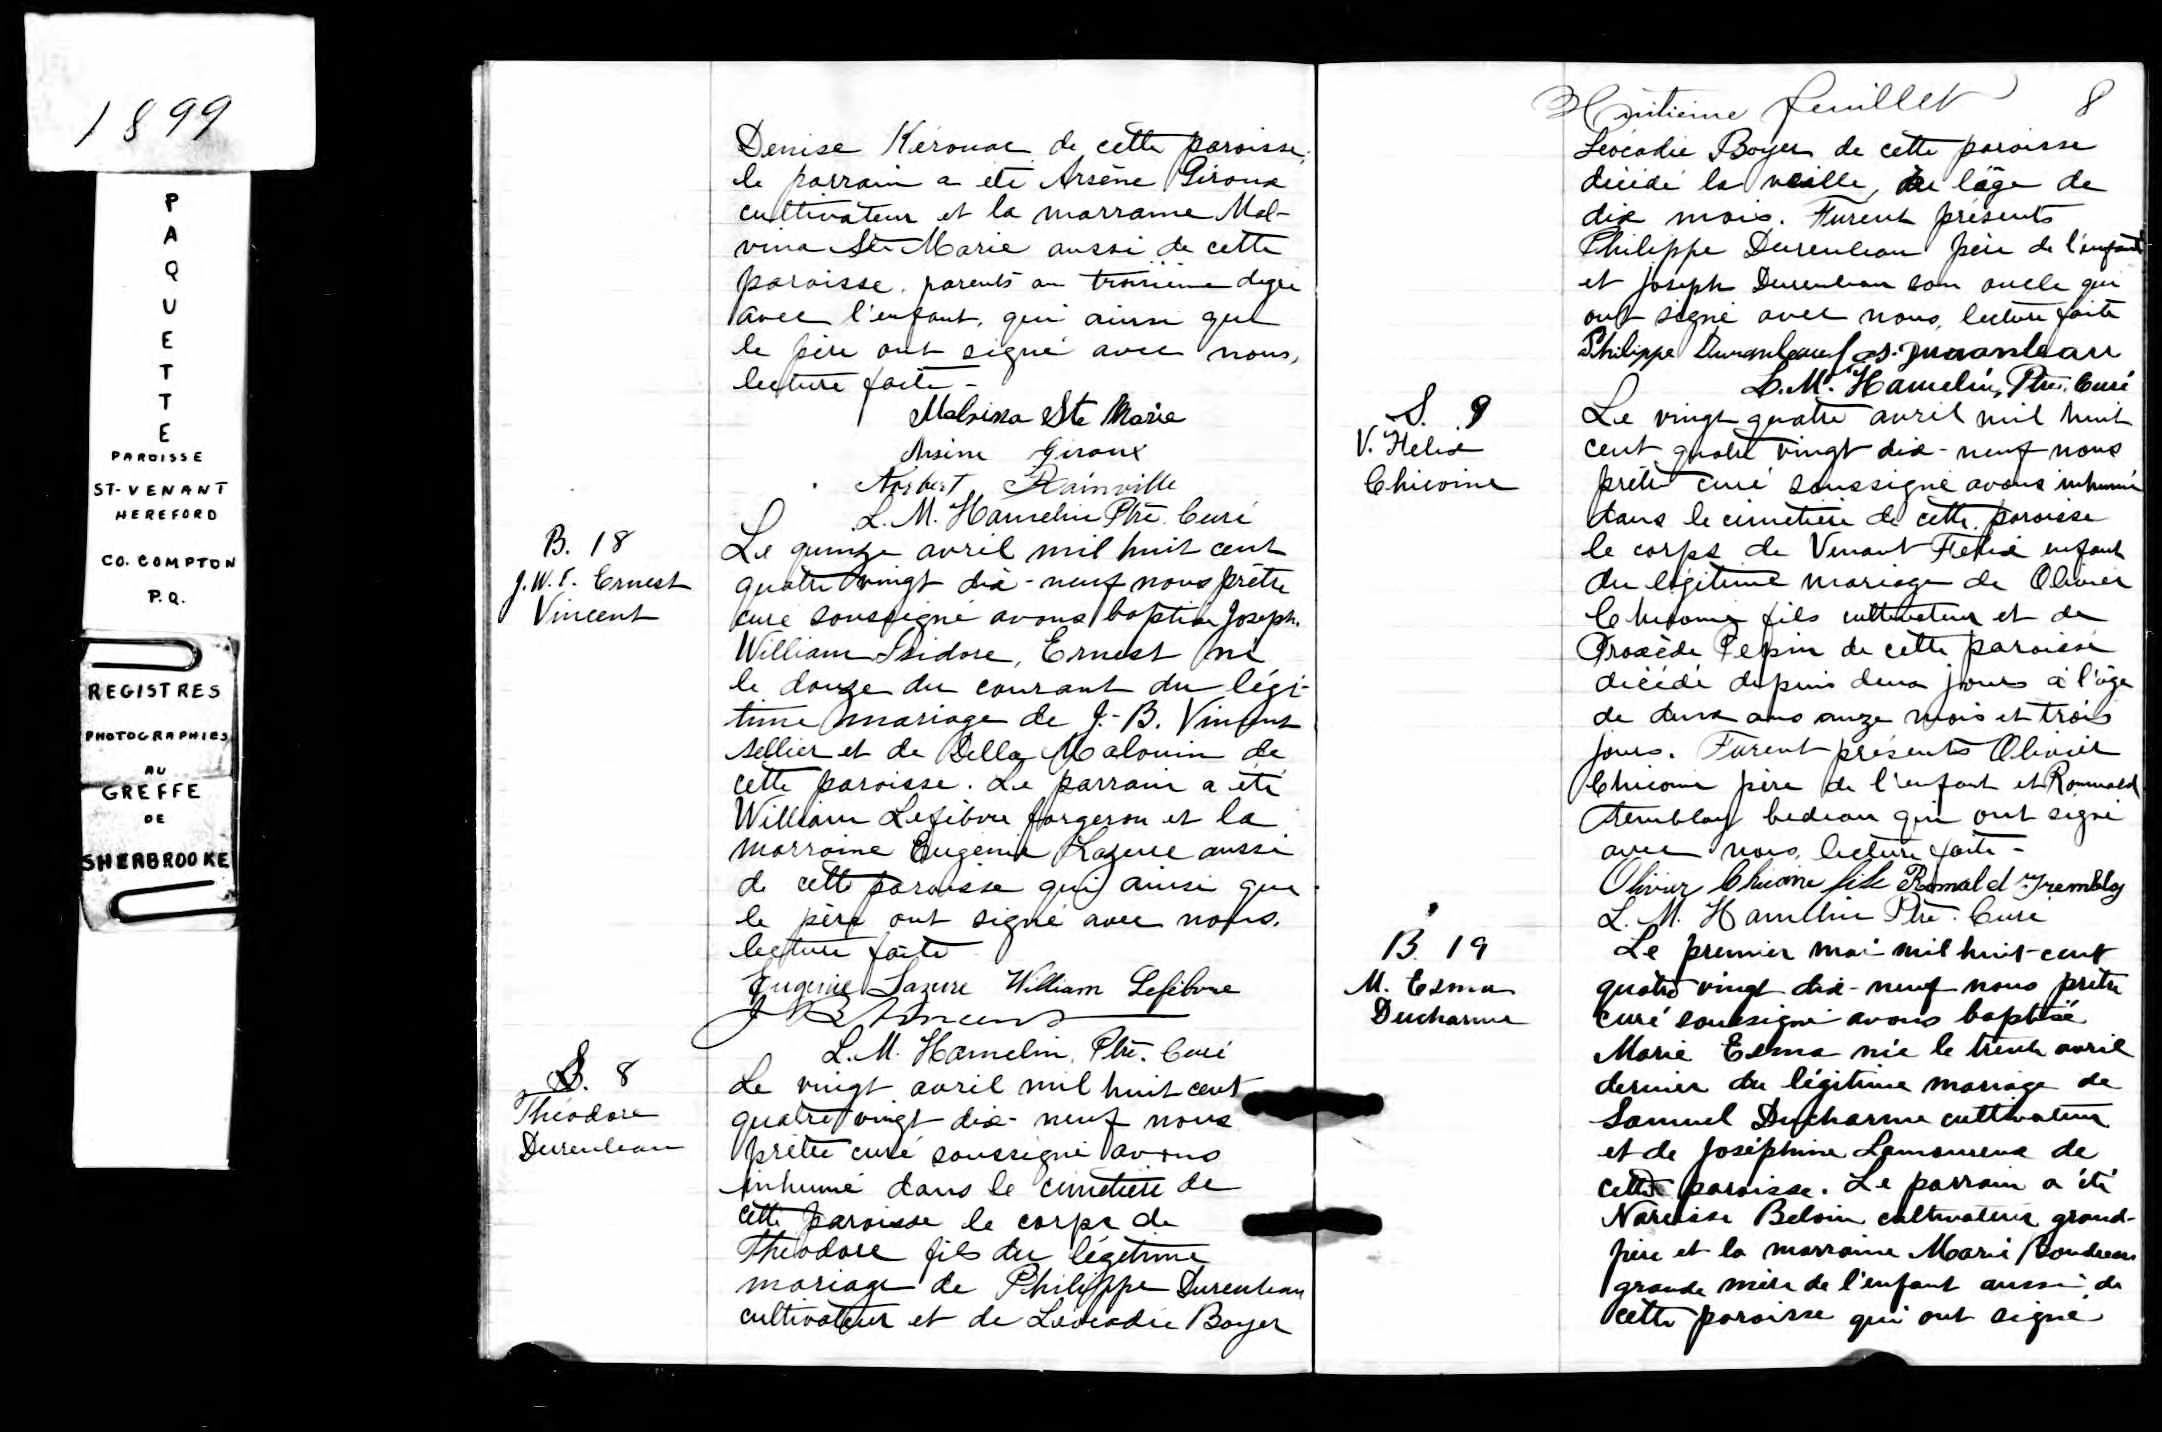 1899
P
A
Q
U
E
T
T
E
PAROISSE
ST-VENANT
HEREFORD
CO. COMPTON
P.Q.
REGISTRES
PHOTOGRAPHIES
AU
GREFFE
DE
SHERBROOKE
Denise Kérouac de cette paroisse,
le parrain a été Arsène Giroux
cultivateur et la marraine Mal-
vina Ste Marie aussi de cette
paroisse, parents au troisième degré
avec l'enfant, qui ainsi que
le père ont signé avec nous,
lecture faite -
Malvina Ste Marie
Arsène Giroux
Norbert Rainville
L. M. Hamelin Ptre. Curé
B. 18
J. W. I. Ernest
Vincent
Le quinze avril mil huit cent
quatre vingt dix-neuf nous prêtre
curé soussigné avons baptisé Joseph.
William Isidore, Ernest né
le douze du courant du légi-
time mariage de J.-B. Vincent
sellier et de Della Malouin de
cette paroisse. Le parrain a été
William Lefebvre forgeron et la
marraine Eugénie Lazure aussi
de cette paroisse qui ainsi que
le père ont signé avec nous.
lecture faite
Eugénie Lazure William Lefebvre
J B Vincent
L. M. Hamelin, Ptre. Curé
S. 8
Théodore
Dureuleau
Le vingt avril mil huit cent
quatre vingt dix-neuf nous
prêtre curé soussigné avons
inhumé dans le cimetière de
cette paroisse le corps de
Théodore fils du légitime
mariage de Philippe Dureuleau
cultivateur et de Léocadie Boyer
Huitième feuillet 8
Léocadie Boyer de cette paroisse
décédé la veille, à l'âge de
dix mois. Furent présents
Philippe Dureuleau père de l'enfant
et Joseph Dureuleau son oncle qui
ont signé avec nous, lecture faite
Philippe Duranleau Jos. Duranleau
L. M. Hamelin, Ptre. Curé
S. 9
V. Felix
Chicoine
Le vingt quatre avril mil huit
cent quatre vingt dix-neuf nous
prêtre curé soussigné avons inhumé
dans le cimetière de cette paroisse
le corps de Venant Felix enfant
du légitime mariage de Olivier
Chicoine fils cultivateur et de
Praxède Pepin de cette paroisse
décédé depuis deux jours à l'âge
de deux ans onze mois et trois
jours. Furent présents Olivier
Chicoine père de l'enfant et Romuald
Tremblay bedeau qui ont signé
avec nous, lecture faite -
Olivier Chicoine fils Romald Tremblay
L. M. Hamelin Ptre. Curé
B. 19
M. Exma
Ducharme
Le premier mai mil huit-cent
quatre vingt dix-neuf nous prêtre
curé soussigné avons baptisé
Marie Exma née le trente avril
dernier du légitime mariage de
Samuel Ducharme cultivateur
et de Joséphine Lamoureux de
cette paroisse. Le parrain a été
Narcisse Beloin cultivateur grand-
père et la marraine Marie Boudreau
grande mère de l'enfant aussi de
cette paroisse qui ont signé